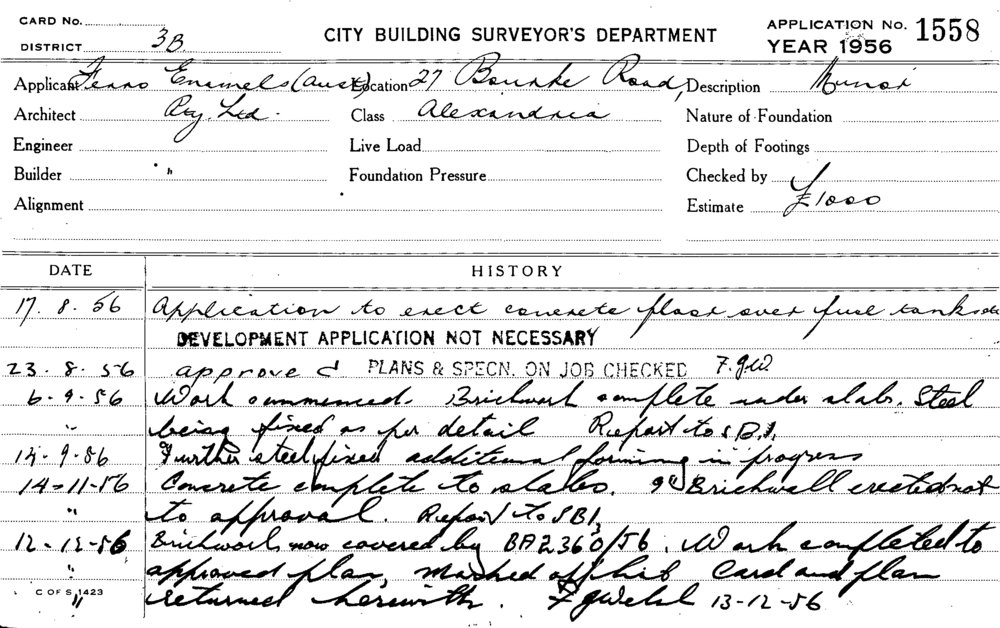 CARD No.
DISTRICT 3B
CITY BUILDING SURVEYOR'S DEPARTMENT
APPLICATION No. 1558
YEAR 1956
Applicant Ferro Enamels (Aust) Location 27 Bourke Road, Description Minor
Architect Pty. Ltd. Class Alexandria Nature of Foundation
Engineer Live Load Depth of Footings
Builder " Foundation Pressure Checked by
Alignment Estimate £1000
DATE HISTORY
17.8.56 Application to erect concrete floor over fuel tanks
DEVELOPMENT APPLICATION NOT NECESSARY
23.8.56 approved PLANS & SPECN. ON JOB CHECKED F.J.W
6-9-56 Work commenced. Brickwork complete under slabs. Steel
" being fixed as per detail Report to SBI.
14-9-56 Further steel fixed additional forming in progress
14-11-56 Concrete complete to slabs. 9" Brickwall erected not
" to approval. Report to SBI,
12-12-56 Brickwork now covered by BA2360/56. Work completed to
" approved plan, marked off hib Card and plan
C OF S 1423 " returned herewith. F J Welsl 13-12-56